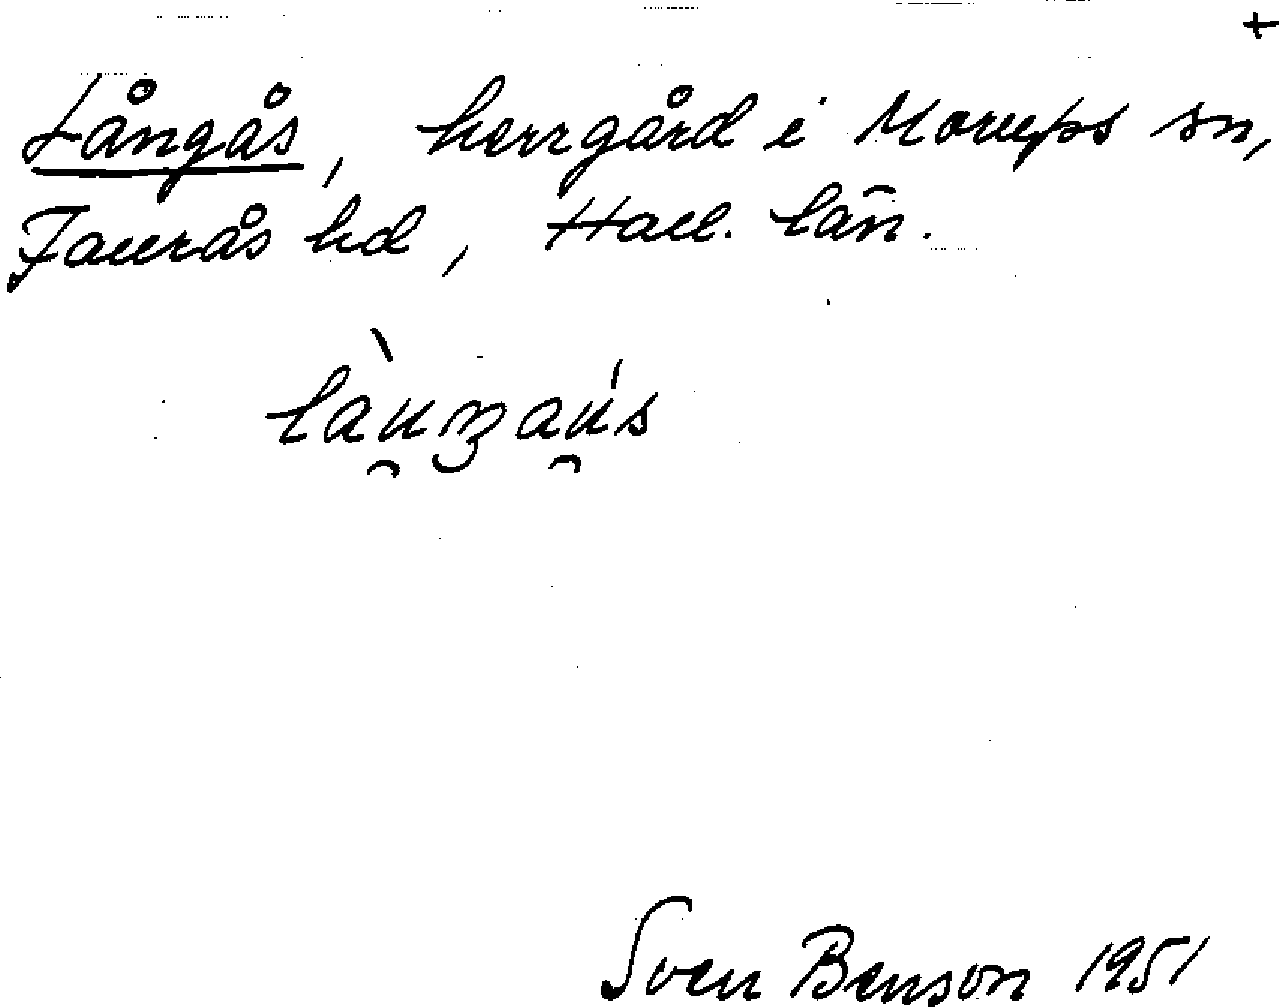 +
Långås, herrgård i Morups sn,
Faurås hd, Hall. län.
Sven Benson 1951